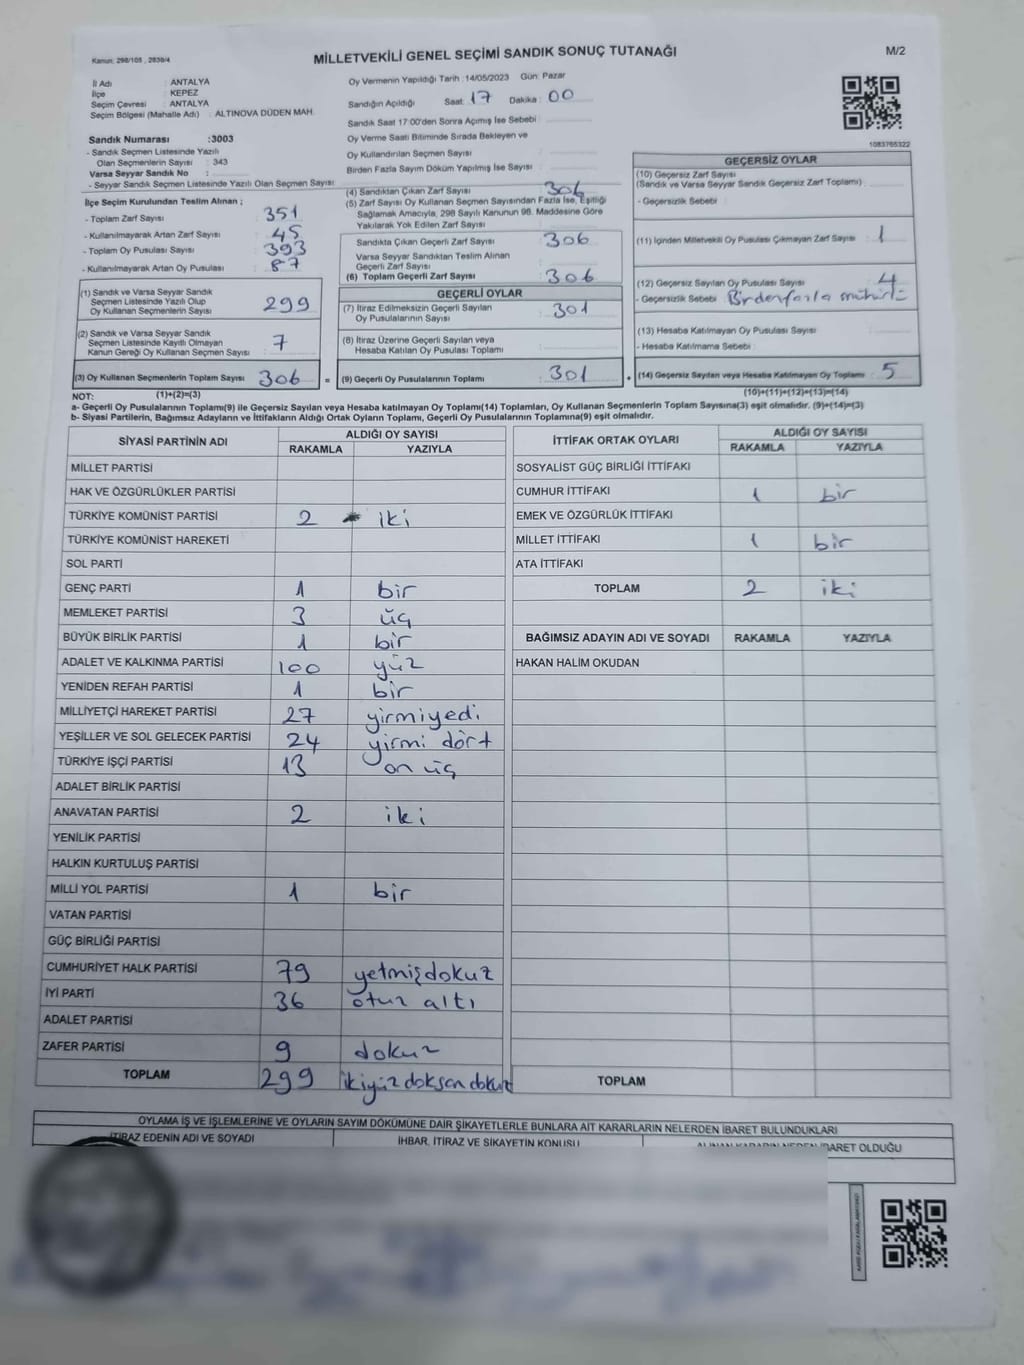 Kanun: 298/105 , 2839/4
MİLLETVEKİLİ GENEL SEÇİMİ SANDIK SONUÇ TUTANAĞI
M/2
İl Adı : ANTALYA
İlçe : KEPEZ
Seçim Çevresi : ANTALYA
Seçim Bölgesi (Mahalle Adı) : ALTINOVA DÜDEN MAH.
Sandık Numarası :3003
- Sandık Seçmen Listesinde Yazılı
Olan Seçmenlerin Sayısı : 343
Varsa Seyyar Sandık No :
- Seyyar Sandık Seçmen Listesinde Yazılı Olan Seçmen Sayısı
Oy Vermenin Yapıldığı Tarih :14/05/2023 Gün: Pazar
Sandığın Açıldığı Saat: 17 Dakika : 00
Sandık Saat 17:00'den Sonra Açımış İse Sebebi :
Oy Verme Saati Bitiminde Sırada Bekleyen ve
Oy Kullandırılan Seçmen Sayısı :
Birden Fazla Sayım Döküm Yapılmış İse Sayısı :
1083765322
İlçe Seçim Kurulundan Teslim Alınan ;
- Toplam Zarf Sayısı : 351
- Kullanılmayarak Artan Zarf Sayısı : 45
- Toplam Oy Pusulası Sayısı : 393
- Kullanılmayarak Artan Oy Pusulası : 87
(1) Sandık ve Varsa Seyyar Sandık
Seçmen Listesinde Yazılı Olup
Oy Kullanan Seçmenlerin Sayısı : 299
(2) Sandık ve Varsa Seyyar Sandık
Seçmen Listesinde Kayıtlı Olmayan
Kanun Gereği Oy Kullanan Seçmen Sayısı : 7
(3) Oy Kullanan Seçmenlerin Toplam Sayısı : 306 =
(4) Sandıktan Çıkan Zarf Sayısı : 306
(5) Zarf Sayısı Oy Kullanan Seçmen Sayısından Fazla İse, Eşitliği
Sağlamak Amacıyla, 298 Sayılı Kanunun 98. Maddesine Göre
Yakılarak Yok Edilen Zarf Sayısı :
Sandıkta Çıkan Geçerli Zarf Sayısı : 306
Varsa Seyyar Sandıktan Teslim Alınan
Geçerli Zarf Sayısı :
(6) Toplam Geçerli Zarf Sayısı : 306
GEÇERLİ OYLAR
(7) İtiraz Edilmeksizin Geçerli Sayılan
Oy Pusulalarının Sayısı : 301
(8) İtiraz Üzerine Geçerli Sayılan veya
Hesaba Katılan Oy Pusulası Toplamı :
(9) Geçerli Oy Pusulalarının Toplamı : 301 +
GEÇERSİZ OYLAR
(10) Geçersiz Zarf Sayısı
(Sandık ve Varsa Seyyar Sandık Geçersiz Zarf Toplamı) :
- Geçersizlik Sebebi :
(11) İçinden Milletvekili Oy Pusulası Çıkmayan Zarf Sayısı : 1
(12) Geçersiz Sayılan Oy Pusulası Sayısı : 4
- Geçersizlik Sebebi : Birden fazla mühür
(13) Hesaba Katılmayan Oy Pusulası Sayısı :
- Hesaba Katılmama Sebebi :
(14) Geçersiz Sayılan veya Hesaba Katılmayan Oy Toplamı : 5
NOT: (1)+(2)=(3)
(10)+(11)+(12)+(13)=(14)
a- Geçerli Oy Pusulalarının Toplamı(9) ile Geçersiz Sayılan veya Hesaba katılmayan Oy Toplamı(14) Toplamları, Oy Kullanan Seçmenlerin Toplam Sayısına(3) eşit olmalıdır. (9)+(14)=(3)
b- Siyasi Partilerin, Bağımsız Adayların ve İttifakların Aldığı Ortak Oyların Toplamı, Geçerli Oy Pusulalarının Toplamına(9) eşit olmalıdır.
SİYASİ PARTİNİN ADI ALDIĞI OY SAYISI
RAKAMLA YAZIYLA
MİLLET PARTİSİ
HAK VE ÖZGÜRLÜKLER PARTİSİ
TÜRKİYE KOMÜNİST PARTİSİ 2 iki
TÜRKİYE KOMÜNİST HAREKETİ
SOL PARTİ
GENÇ PARTİ 1 bir
MEMLEKET PARTİSİ 3 üç
BÜYÜK BİRLİK PARTİSİ 1 bir
ADALET VE KALKINMA PARTİSİ 100 yüz
YENİDEN REFAH PARTİSİ 1 bir
MİLLİYETÇİ HAREKET PARTİSİ 27 yirmiyedi
YEŞİLLER VE SOL GELECEK PARTİSİ 24 yirmi dört
TÜRKİYE İŞÇİ PARTİSİ 13 on üç
ADALET BİRLİK PARTİSİ
ANAVATAN PARTİSİ 2 iki
YENİLİK PARTİSİ
HALKIN KURTULUŞ PARTİSİ
MİLLİ YOL PARTİSİ 1 bir
VATAN PARTİSİ
GÜÇ BİRLİĞİ PARTİSİ
CUMHURİYET HALK PARTİSİ 79 yetmişdokuz
İYİ PARTİ 36 otuz altı
ADALET PARTİSİ
ZAFER PARTİSİ 9 dokuz
TOPLAM 299 ikiyüzdoksandokuz
İTTİFAK ORTAK OYLARI ALDIĞI OY SAYISI
RAKAMLA YAZIYLA
SOSYALİST GÜÇ BİRLİĞİ İTTİFAKI
CUMHUR İTTİFAKI 1 bir
EMEK VE ÖZGÜRLÜK İTTİFAKI
MİLLET İTTİFAKI 1 bir
ATA İTTİFAKI
TOPLAM 2 iki
BAĞIMSIZ ADAYIN ADI VE SOYADI RAKAMLA YAZIYLA
HAKAN HALİM OKUDAN
TOPLAM
OYLAMA İŞ VE İŞLEMLERİNE VE OYLARIN SAYIM DÖKÜMÜNE DAİR ŞİKAYETLERLE BUNLARA AİT KARARLARIN NELERDEN İBARET BULUNDUKLARI
İTİRAZ EDENİN ADI VE SOYADI İHBAR, İTİRAZ VE ŞİKAYETİN KONUSU ALINAN KARARIN NEDEN İBARET OLDUĞU